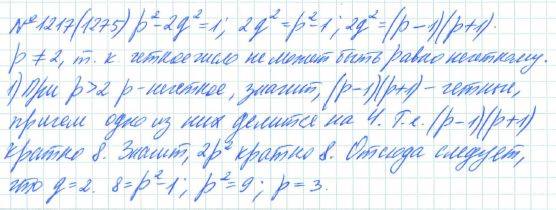 № 1217(1275) p²-2q²=1; 2q²=p²-1; 2q²=(p-1)(p+1).
p≠2, т. к. четное число не может быть равно нечетному.
1) При p>2 p-нечетное, значит, (p-1)(p+1) - четные,
причем одно из них делится на 4. Т.е. (p-1)(p+1)
кратно 8. Значит, 2p² кратно 8. Отсюда следует,
что q=2. 8=p²-1; p²=9; p=3.